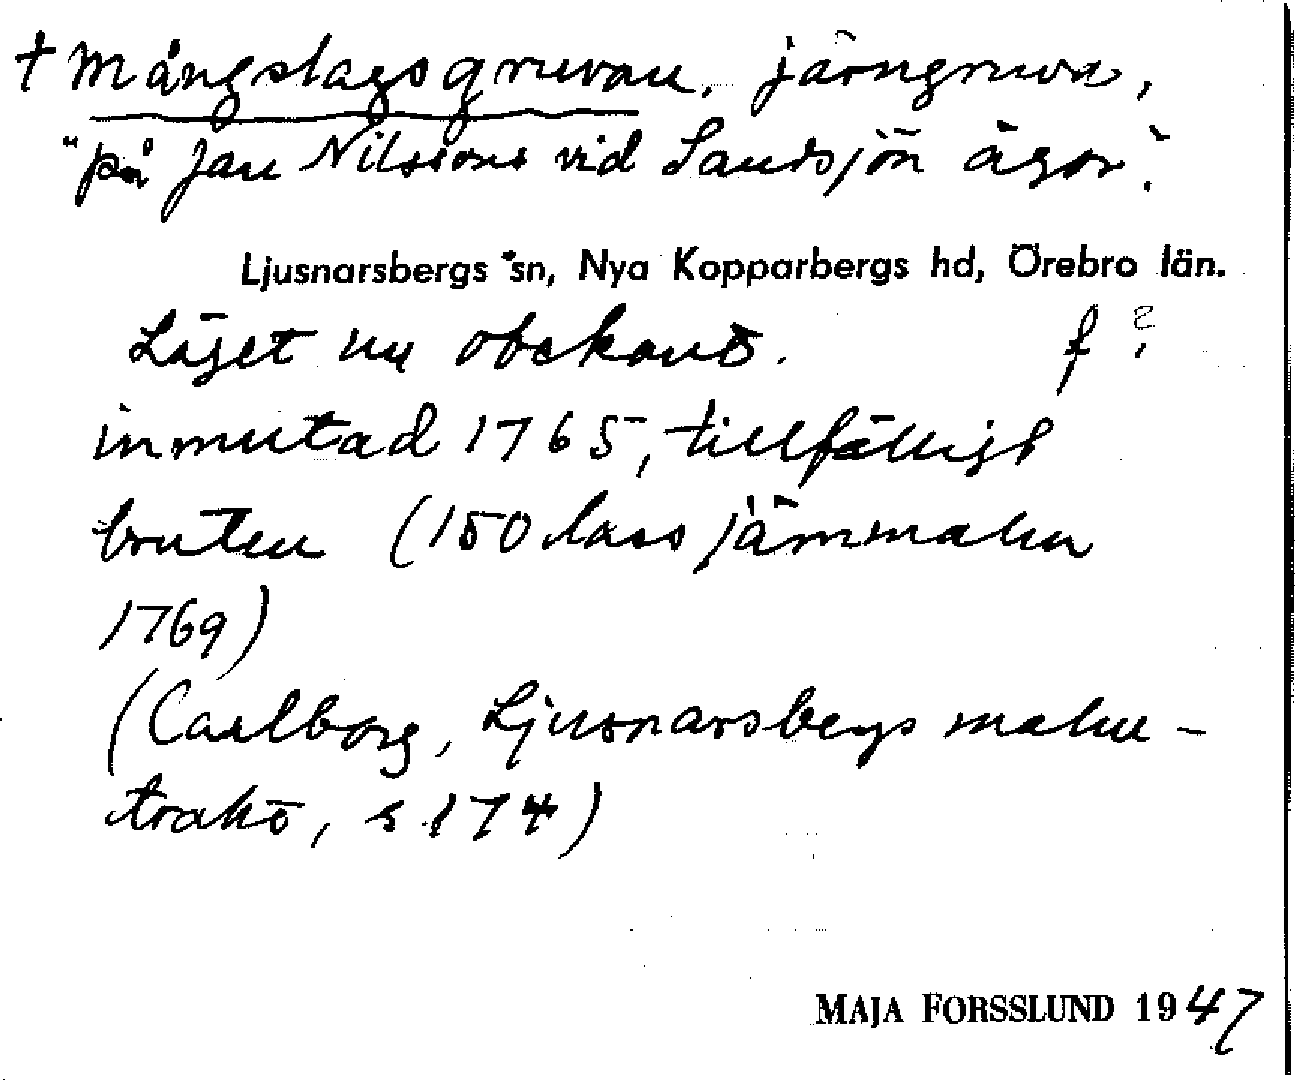 † Mångslagsgruvan, järngruva,
"på Jan Nilssons vid Sandsjön ägor".
Ljusnarsbergs sn, Nya Kopparbergs hd, Örebro län.
Läget nu obekant. f ?
inmutad 1765, tillfälligt
bruten (150 lass järnmalm
1769)
(Carlborg, Ljusnarsbergs malm-
trakt, s 174)
MAJA FORSSLUND 1947